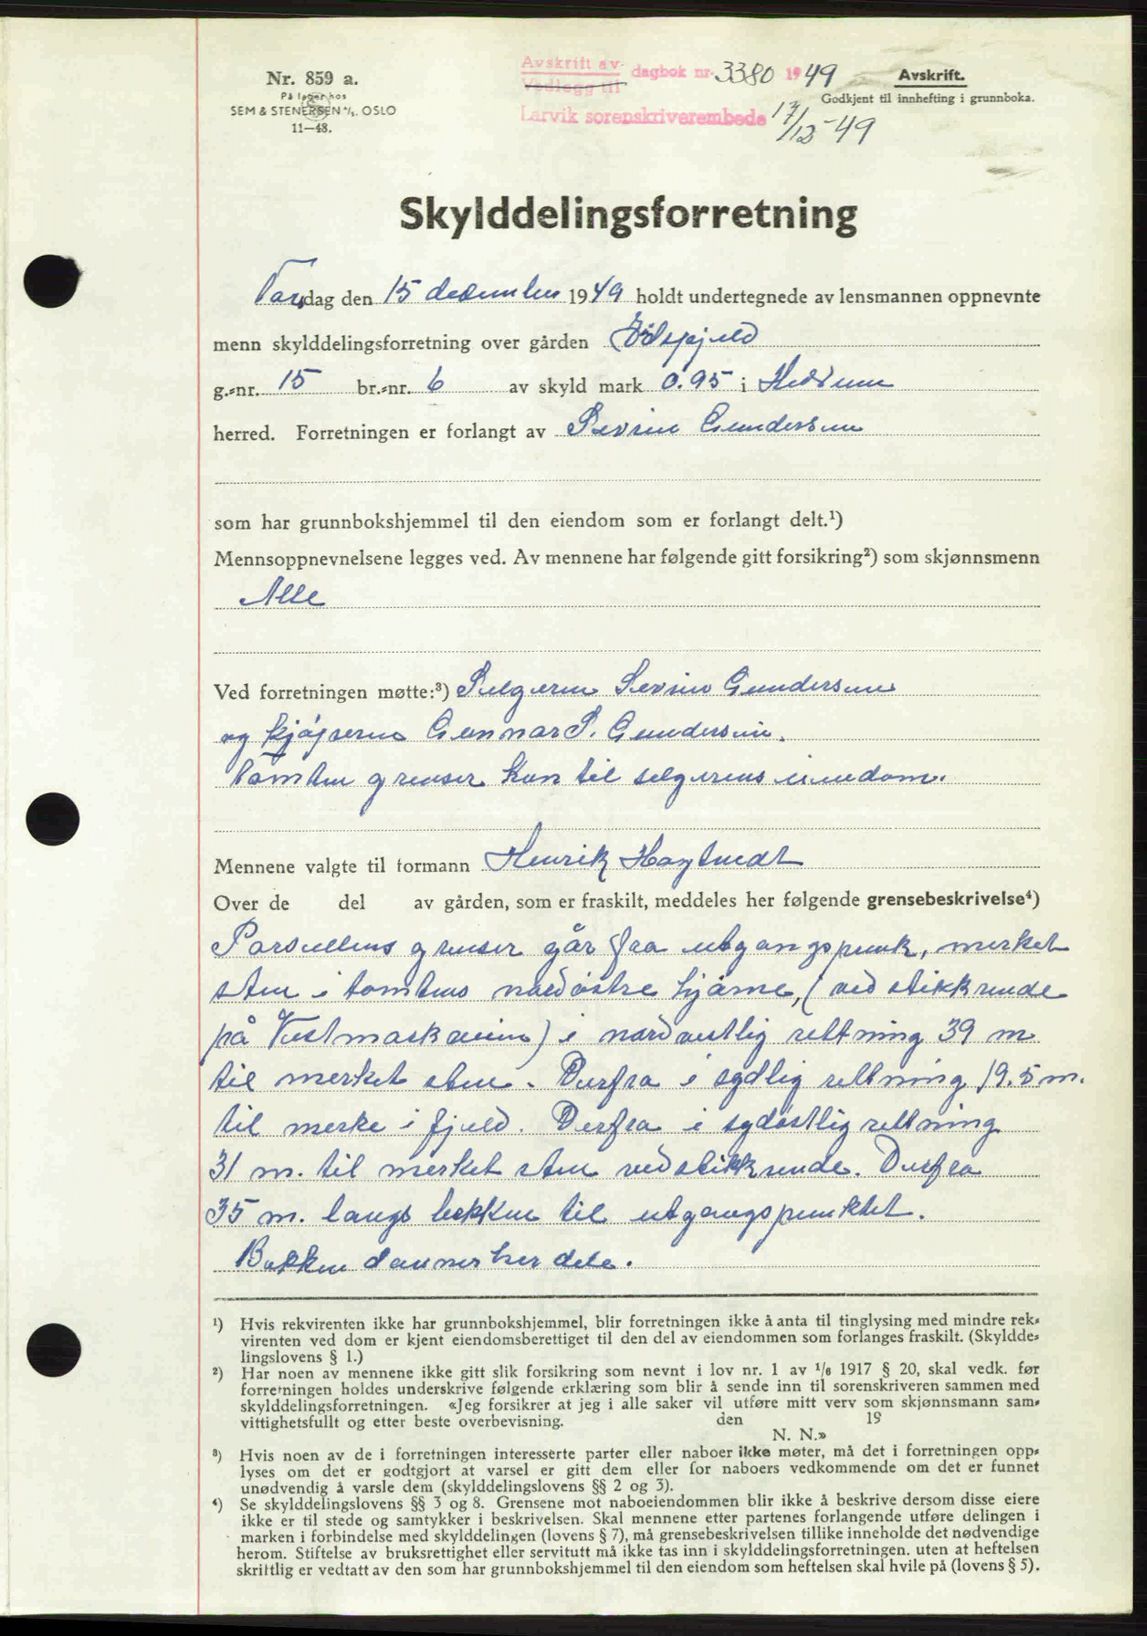 Nr. 859 a.
På lager hos
SEM & STENERSEN A/S. OSLO
11—48.
Avskrift av
Vedlegg til
dagbok nr. 3380 1949
Larvik sorenskriverembede 17/12-49
Avskrift.
Godkjent til innhefting i grunnboka.
Skylddelingsforretning
Torsdag den 15 desember 1949 holdt undertegnede av lensmannen oppnevnte
menn skylddelingsforretning over gården
g.=nr. 15 br.=nr. 6 av skyld mark 0.95 i Hedrum
herred. Forretningen er forlangt av Sevrin Gundersen
som har grunnbokshjemmel til den eiendom som er forlangt delt.¹)
Mennsoppnevnelsene legges ved. Av mennene har følgende gitt forsikring²) som skjønnsmenn
Alle
Ved forretningen møtte:³) Selgeren Sevrin Gundersen
og kjøperen Gunnar S. Gundersen.
Tomten grenser kun til selgerens eiendom.
Mennene valgte til formann Henrik Hagtvedt
Over de del av gården, som er fraskilt, meddeles her følgende grensebeskrivelse⁴)
Parsellens grenser går fra utgangspunk, merket
sten i tomtens nordøstre hjørne, (ved stikkrende
på Vestmarkveien) i nordvestlig rettning 39 m
til merket sten. Derfra i sydlig rettning 19.5 m.
til merke i fjeld. Derfra i sydøstlig rettning
31 m. til merket sten ved stikkrende. Derfra
35 m. langs bekken til utgangspunktet.
Bekken danner her dele.
¹) Hvis rekvirenten ikke har grunnbokshjemmel, blir forretningen ikke å anta til tinglysing med mindre rek=
virenten ved dom er kjent eiendomsberettiget til den del av eiendommen som forlanges fraskilt. (Skyldde=
lingslovens § 1.)
²) Har noen av mennene ikke gitt slik forsikring som nevnt i lov nr. 1 av 1/6 1917 § 20, skal vedk. før
forretningen holdes underskrive følgende erklæring som blir å sende inn til sorenskriveren sammen med
skylddelingsforretningen. «Jeg forsikrer at jeg i alle saker vil utføre mitt verv som skjønnsmann sam=
vittighetsfullt og etter beste overbevisning. den 19
N. N.»
³) Hvis noen av de i forretningen interesserte parter eller naboer ikke møter, må det i forretningen opp=
lyses om det er godtgjort at varsel er gitt dem eller for naboers vedkommende om det er funnet
unødvendig å varsle dem (skylddelingslovens §§ 2 og 3).
⁴) Se skylddelingslovens §§ 3 og 8. Grensene mot naboeiendommen blir ikke å beskrive dersom disse eiere
ikke er til stede og samtykker i beskrivelsen. Skal mennene etter partenes forlangende utføre delingen i
marken i forbindelse med skylddelingen (lovens § 7), må grensebeskrivelsen tillike inneholde det nødvendige
herom. Stiftelse av bruksrettighet eller servitutt må ikke tas inn i skylddelingsforretningen. uten at heftelsen
skriftlig er vedtatt av den som har grunnbokshjemmel til den eiendom som heftelsen skal hvile på (lovens § 5).